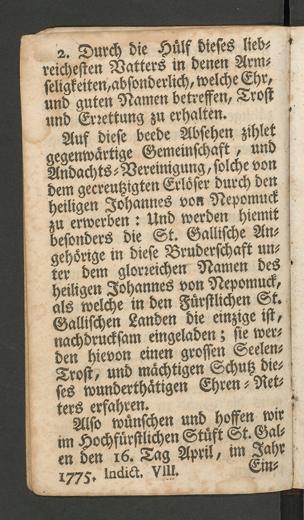 2. Durch die Hülf dieses lieb-
reichesten Vatters in denen Arm-
seligkeiten, absonderlich, welche Ehr,
und guten Namen betreffen, Trost
und Errettung zu erhalten.
Auf diese beede Absehen zihlet
gegenwärtige Gemeinschaft, und
Andachts-Vereinigung, solche von
dem gecreutzigten Erlöser durch den
heiligen Johannes von Nepomuck
zu erwerben: Und werden hiemit
besonders die St. Gallische An-
gehörige in diese Bruderschaft un-
ter dem glorreichen Namen des
heiligen Johannes von Nepomuck,
als welche in den Fürstlichen St.
Gallischen Landen die einzige ist,
nachdrucksam eingeladen; sie wer-
den hievon einen grossen Seelen-
Trost, und mächtigen Schutz die-
ses wunderthätigen Ehren-Ret-
ters erfahren.
Also wünschen und hoffen wir
im Hochfürstlichen Stüft St. Gal-
en den 16. Tag April, im Jahr
1775. Indict. VIII.
Ein-